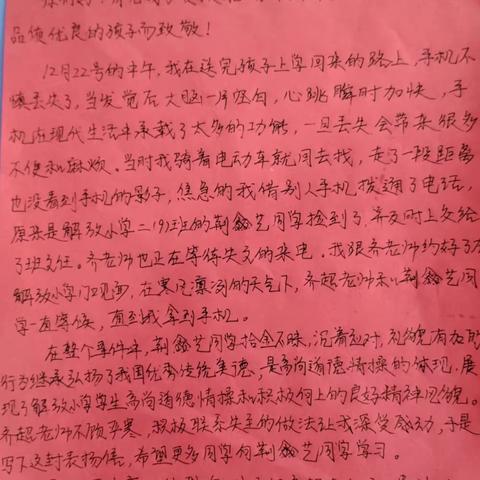 品质优良的孩子而致敬！
12月22号的中午，我在送完孩子上学回来的路上，手机不
慎丢失了，当发觉后大脑一片空白，心跳瞬时加快，手
机在现代生活中承载了太多的功能，一旦丢失会带来很多
不便和麻烦。当时我骑着电动车就回去找，走了一段距离
也没看到手机的影子，焦急的我借别人手机拨通了电话，
原来是解放小学二(9)班的荆鑫艺同学捡到了，并及时上交给
了班主任。齐老师也正在等待失主的来电。我跟齐老师约好了在
解放小学门口见面，在寒风凛冽的天气下，齐超老师和荆鑫艺同
学一直等候，直到我拿到手机。
在整个事件中，荆鑫艺同学拾金不昧，沉着应对，礼貌有加的
行为继承弘扬了我国优秀传统美德，是高尚道德情操的体现，展
现了解放小学学生高尚道德情操和积极向上的良好精神风貌。
齐超老师不顾严寒，积极联系失主的做法让我深受感动，于是
写下这封表扬信，希望更多同学向荆鑫艺同学学习。